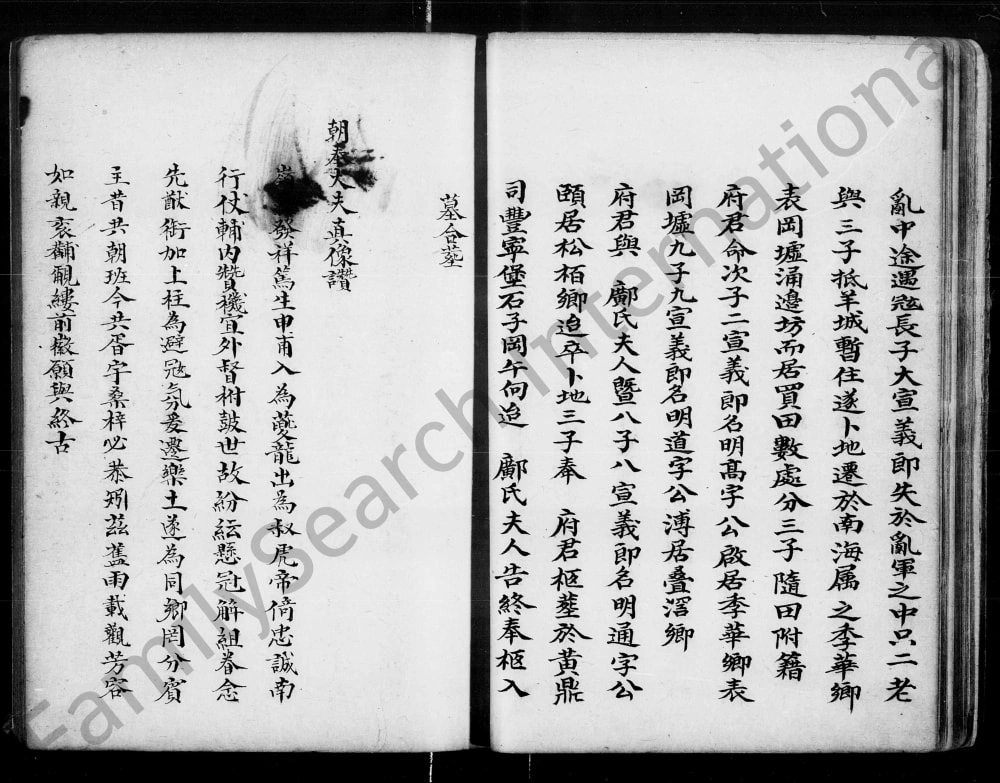 亂中途遇冦長子大宣義即失於亂軍之中只二老
與三子抵羊城暫住遂卜地遷於南海属之季華鄉
表岡墟涌邊坊而居買田數處分三子隨田附籍
府君命次子二宣義即名明髙字公啟居季華鄉表
岡墟九子九宣義即名明道字公溥居叠滘鄉
府君與 鄺氏夫人暨八子八宣義即名明通字公
頤居松栢鄉迨卒卜地三子奉 府君柩塟於黄鼎
司豐寧堡石子岡午向迨 鄺氏夫人告終奉柩入
墓合塟
朝奉大夫真像讃
發祥篤生申甫入為夔龍出為叔虎帝倚忠誠南
行仗輔内贊機宜外督枹鼓世故紛紜懸冠解組眷念
先猷銜加上柱為避冦氛爰遷樂土遂為同鄉罔分賓
主昔共朝班今共胥宇桑梓必恭矧茲舊雨載觀芳容
如親衮黼覼縷前徽願與終古
FamilySearch International